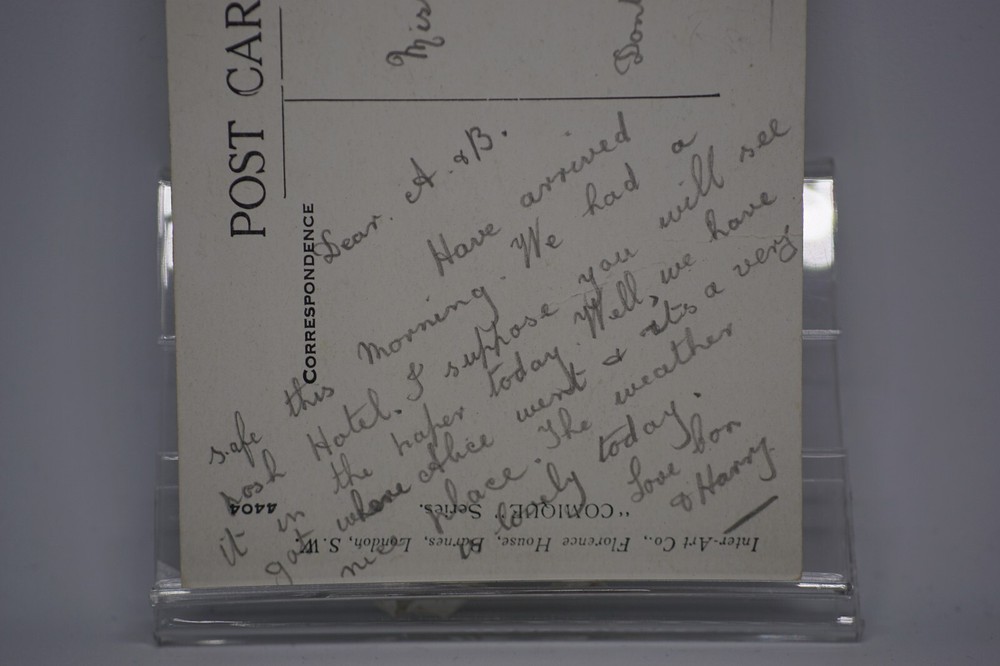 POST CAR
CORRESPONDENCE
Mis
Don
Dear. A. & B.
Have arrived
safe this morning. We had a
posh Hotel. I suppose you will see
it in the paper today. Well, we have
got where Alice went & its a very
nice place. The weather
is lovely today.
Love
& Harry.
4404 "COMIQUE" Series.
Inter-Art Co., Florence House, Barnes, London, S.W.